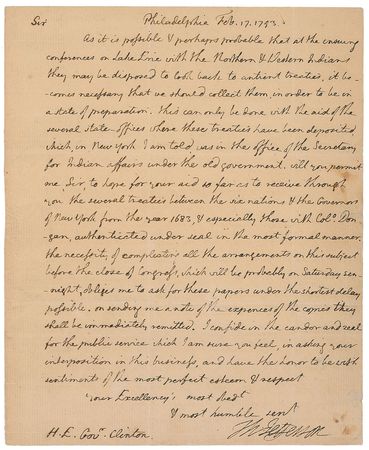 Sir
Philadelphia Feb. 17. 1793.
As it is possible & perhaps probable that at the ensuing
conferences on Lake Erie with the Northern & Western Indians
they may be disposed to look back to antient treaties, it be-
-comes necessary that we should collect them, in order to be in
a state of preparation. this can only be done with the aid of the
several state offices where these treaties have been deposited,
which, in New York I am told, was in the office of the Secretary
for Indian affairs under the old government. will you permit
me, Sir, to hope for your aid so far as to receive through
you the several treaties between the six nations & the Governors
of New York from the year 1683, & especially those with Colo. Don-
-gan, authenticated under seal in the most formal manner.
the necessity of completing all the arrangements on this subject
before the close of Congress, which will be probably on Saturday sen-
-night, obliges me to ask for these papers under the shortest delay
possible. on sending me a note of the expences of the copies they
shall be immediately remitted. I confide in the candor and zeal
for the public service which I am sure you feel, in asking your
interposition in this business, and have the honor to be with
sentiments of the most perfect esteem & respect
your Excellency's most obedt
& most humble servt
Th: Jefferson
H. E. Govr. Clinton.